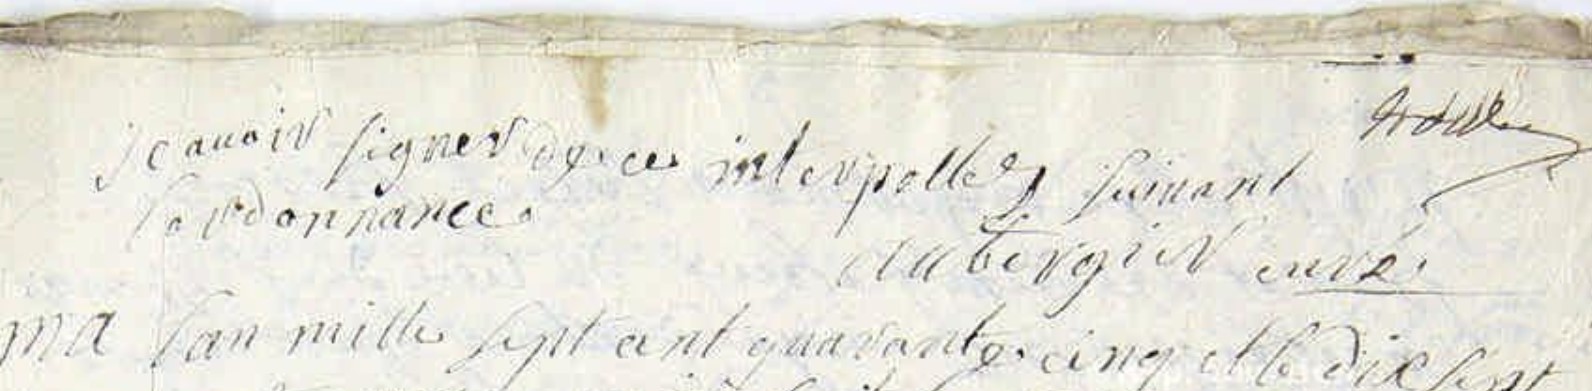 scavoir signer de ce interpelle suivant
lordonnance
aubergier curé
lan mille sept cent quarante cinq et le dix sept